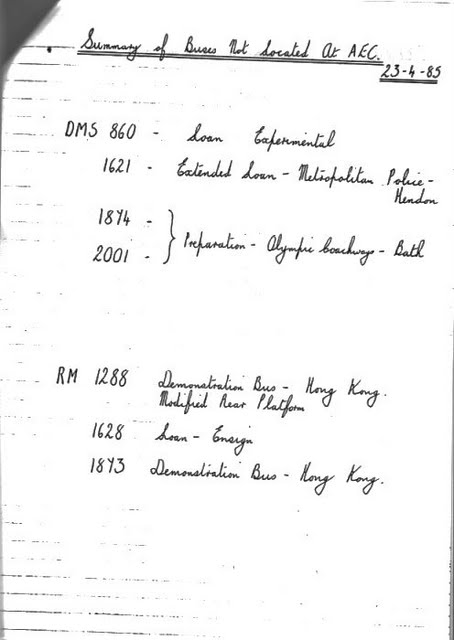 Summary of Buses Not Located At AEC.
23-4-85
DMS 860 - Loan Experimental
1621 - Extended Loan - Metropolitan Police -
Hendon
1874 -
2001 - } Preparation - Olympic Coachways - Bath
RM 1288 Demonstration Bus - Hong Kong.
Modified Rear Platform
1628 Loan - Ensign
1873 Demonstration Bus - Hong Kong.